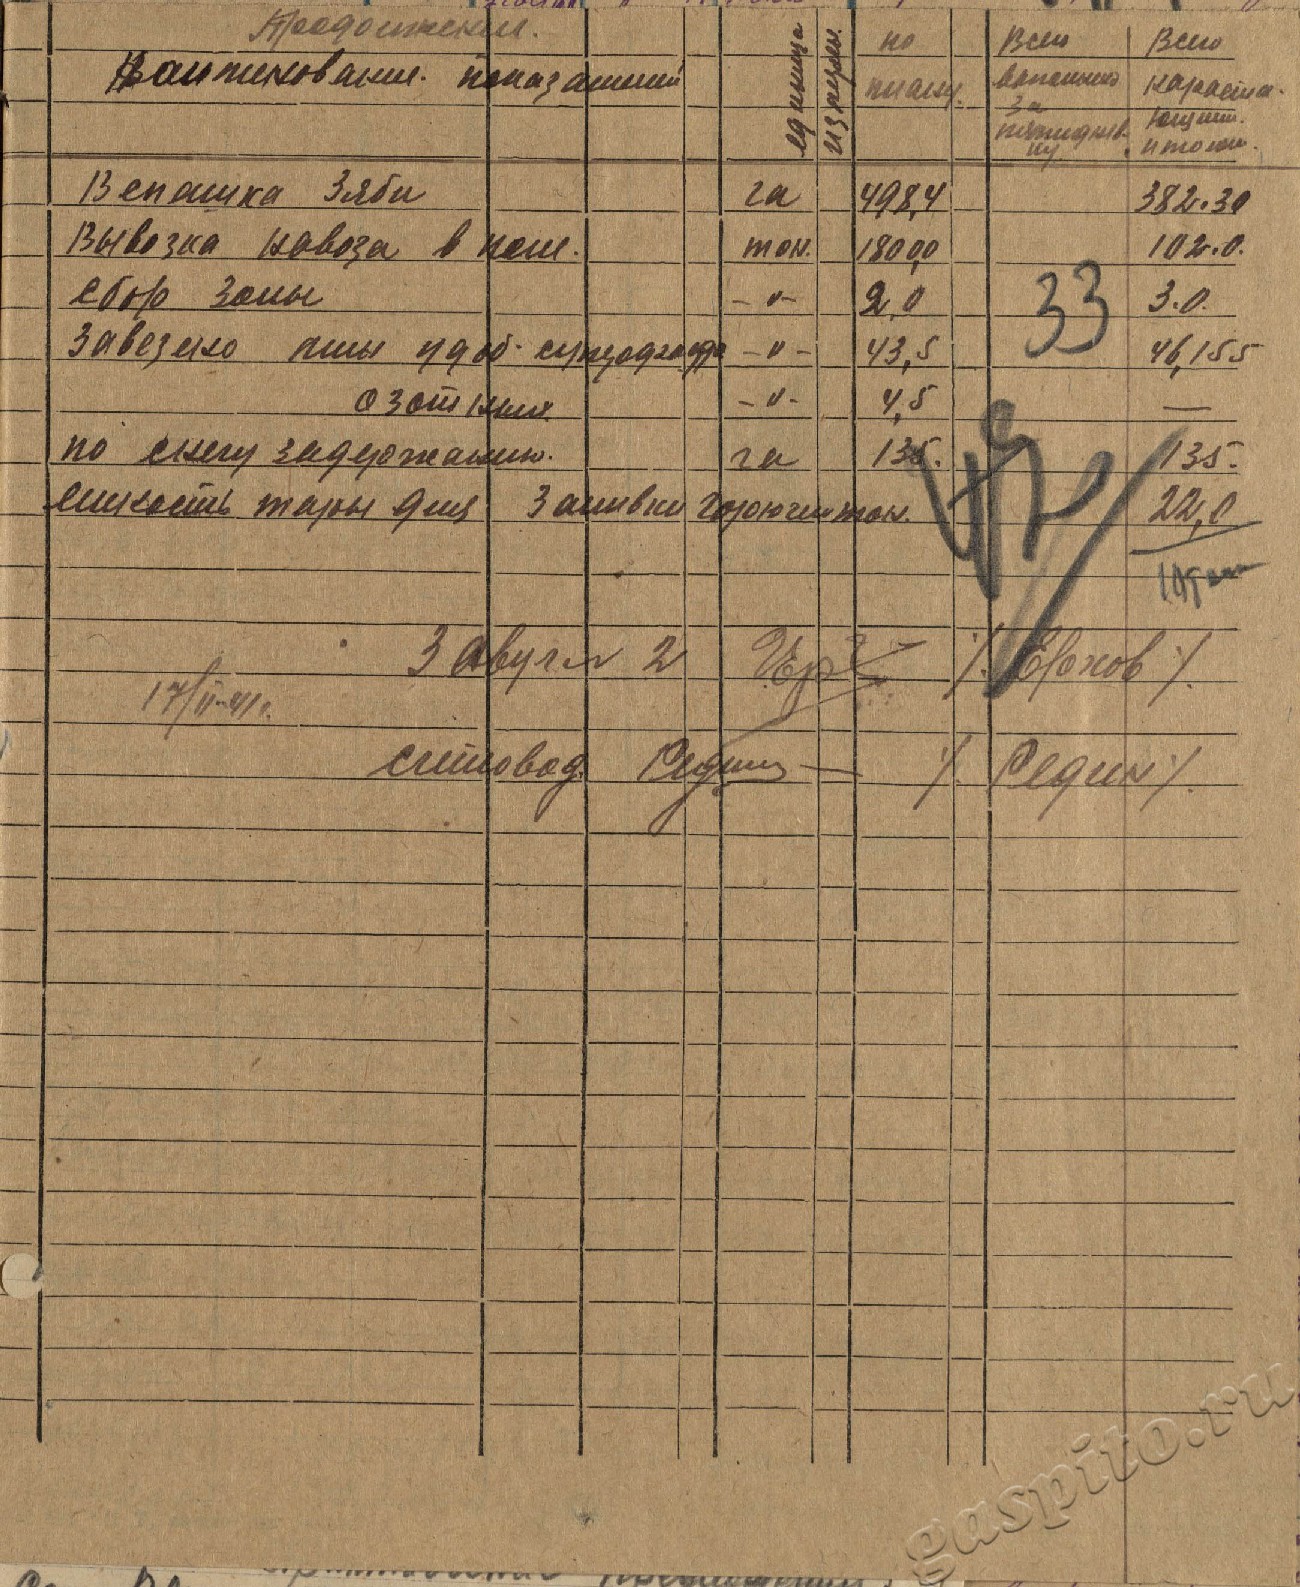 Продолжение.
Наименование показаний
единица измерен.
по плану.
Всего выполнено за пятиднев-ку
Всего нарастающим. итогом.
Вспашка Зяби га 498,4 382.30
Вывозка навоза в поле. тон. 1800,0 102.0.
Сбор Золы -"- 2,0 3.0.
Завезено мин удоб. суперфосфа -"- 43,5 46,155
азотных -"- 4,5 —
по снегу задержанию. га 135. 135.
емкость тары для Заливки горючим тон. 22,0
33
З авуч 2 /. Ершов /.
17/II-41г.
счетовод. Редин — /. Редин /.
gaspito.ru